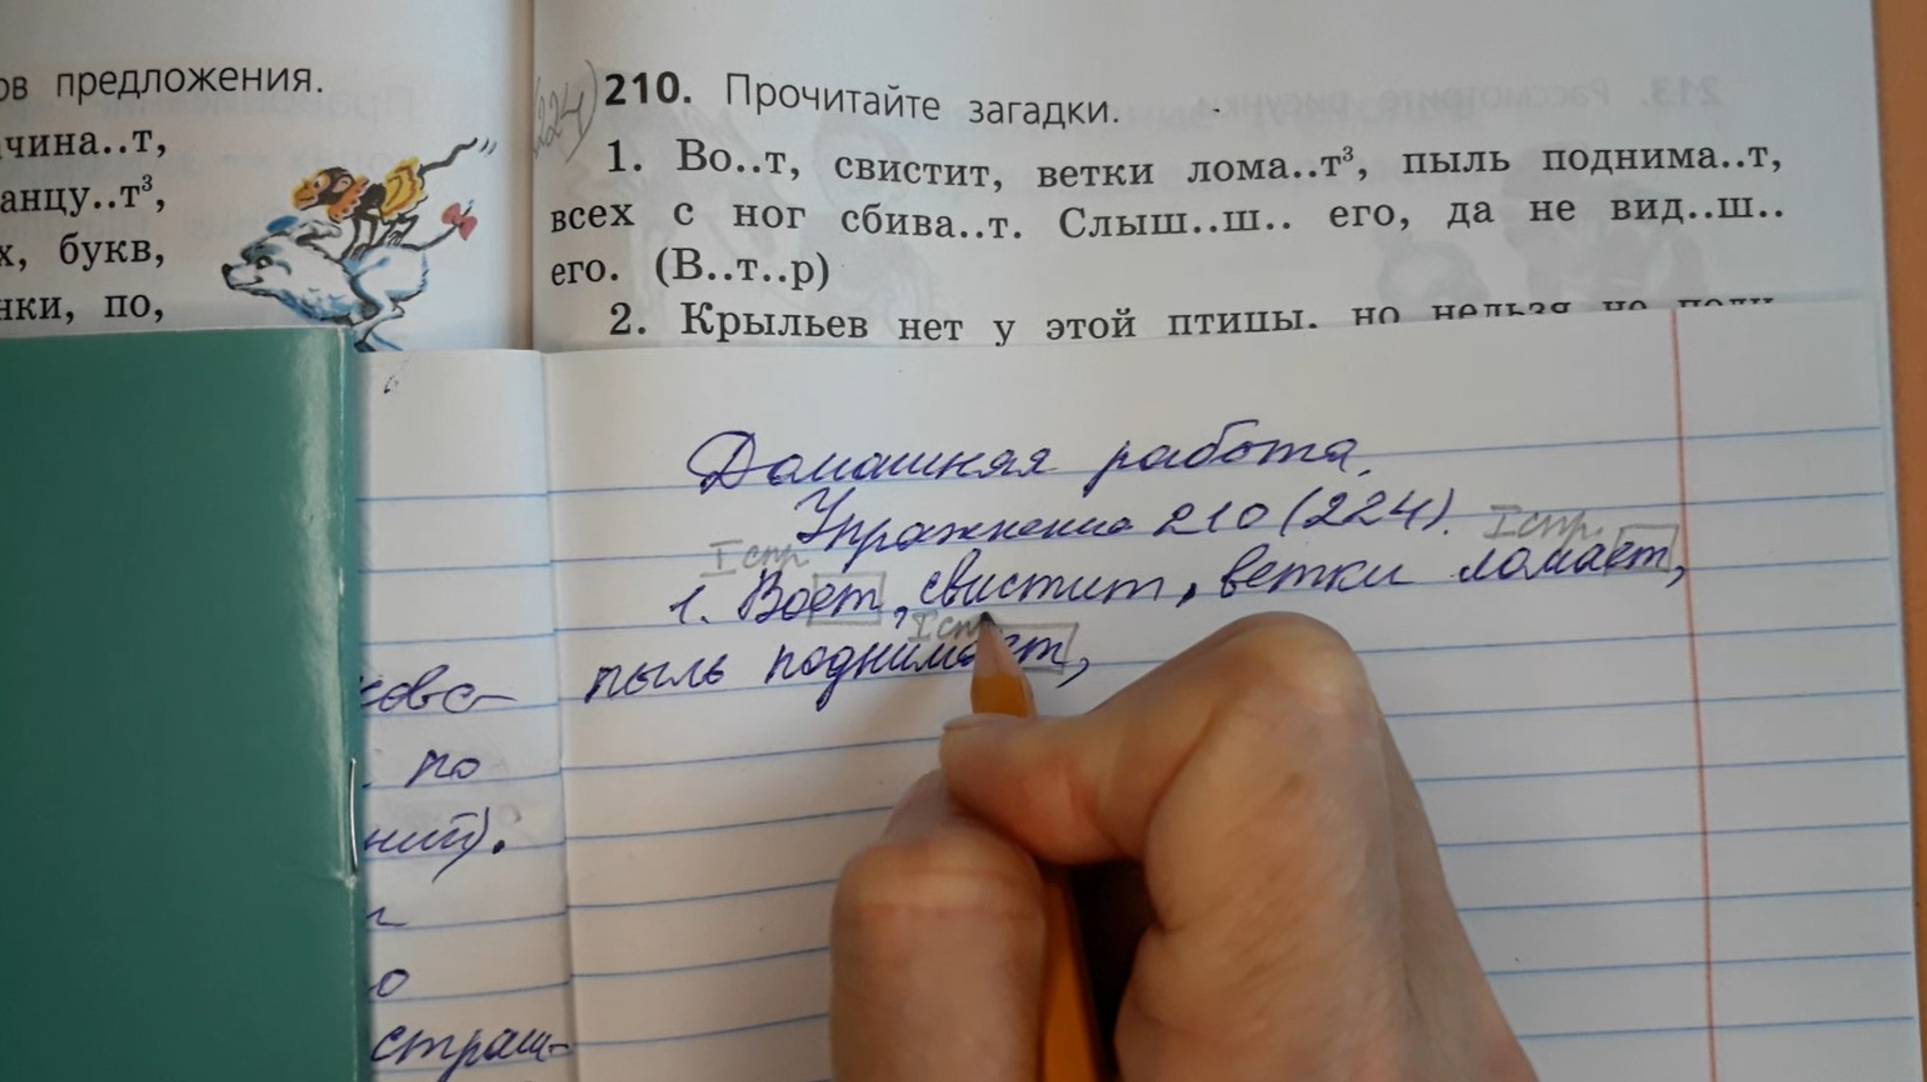 ов предложения.
чина..т,
анцу..т³,
х, букв,
нки, по,
(224)
210. Прочитайте загадки.
1. Во..т, свистит, ветки лома..т³, пыль поднима..т,
всех с ног сбива..т. Слыш..ш.. его, да не вид..ш..
его. (В..т..р)
2. Крыльев нет у этой птицы, но нельзя не поди
Домашняя работа.
Упражнение 210 (224).
I спр. I спр.
1. Воет, свистит, ветки ломает,
I спр
пыль поднимает,
по
ний).
о
страш-